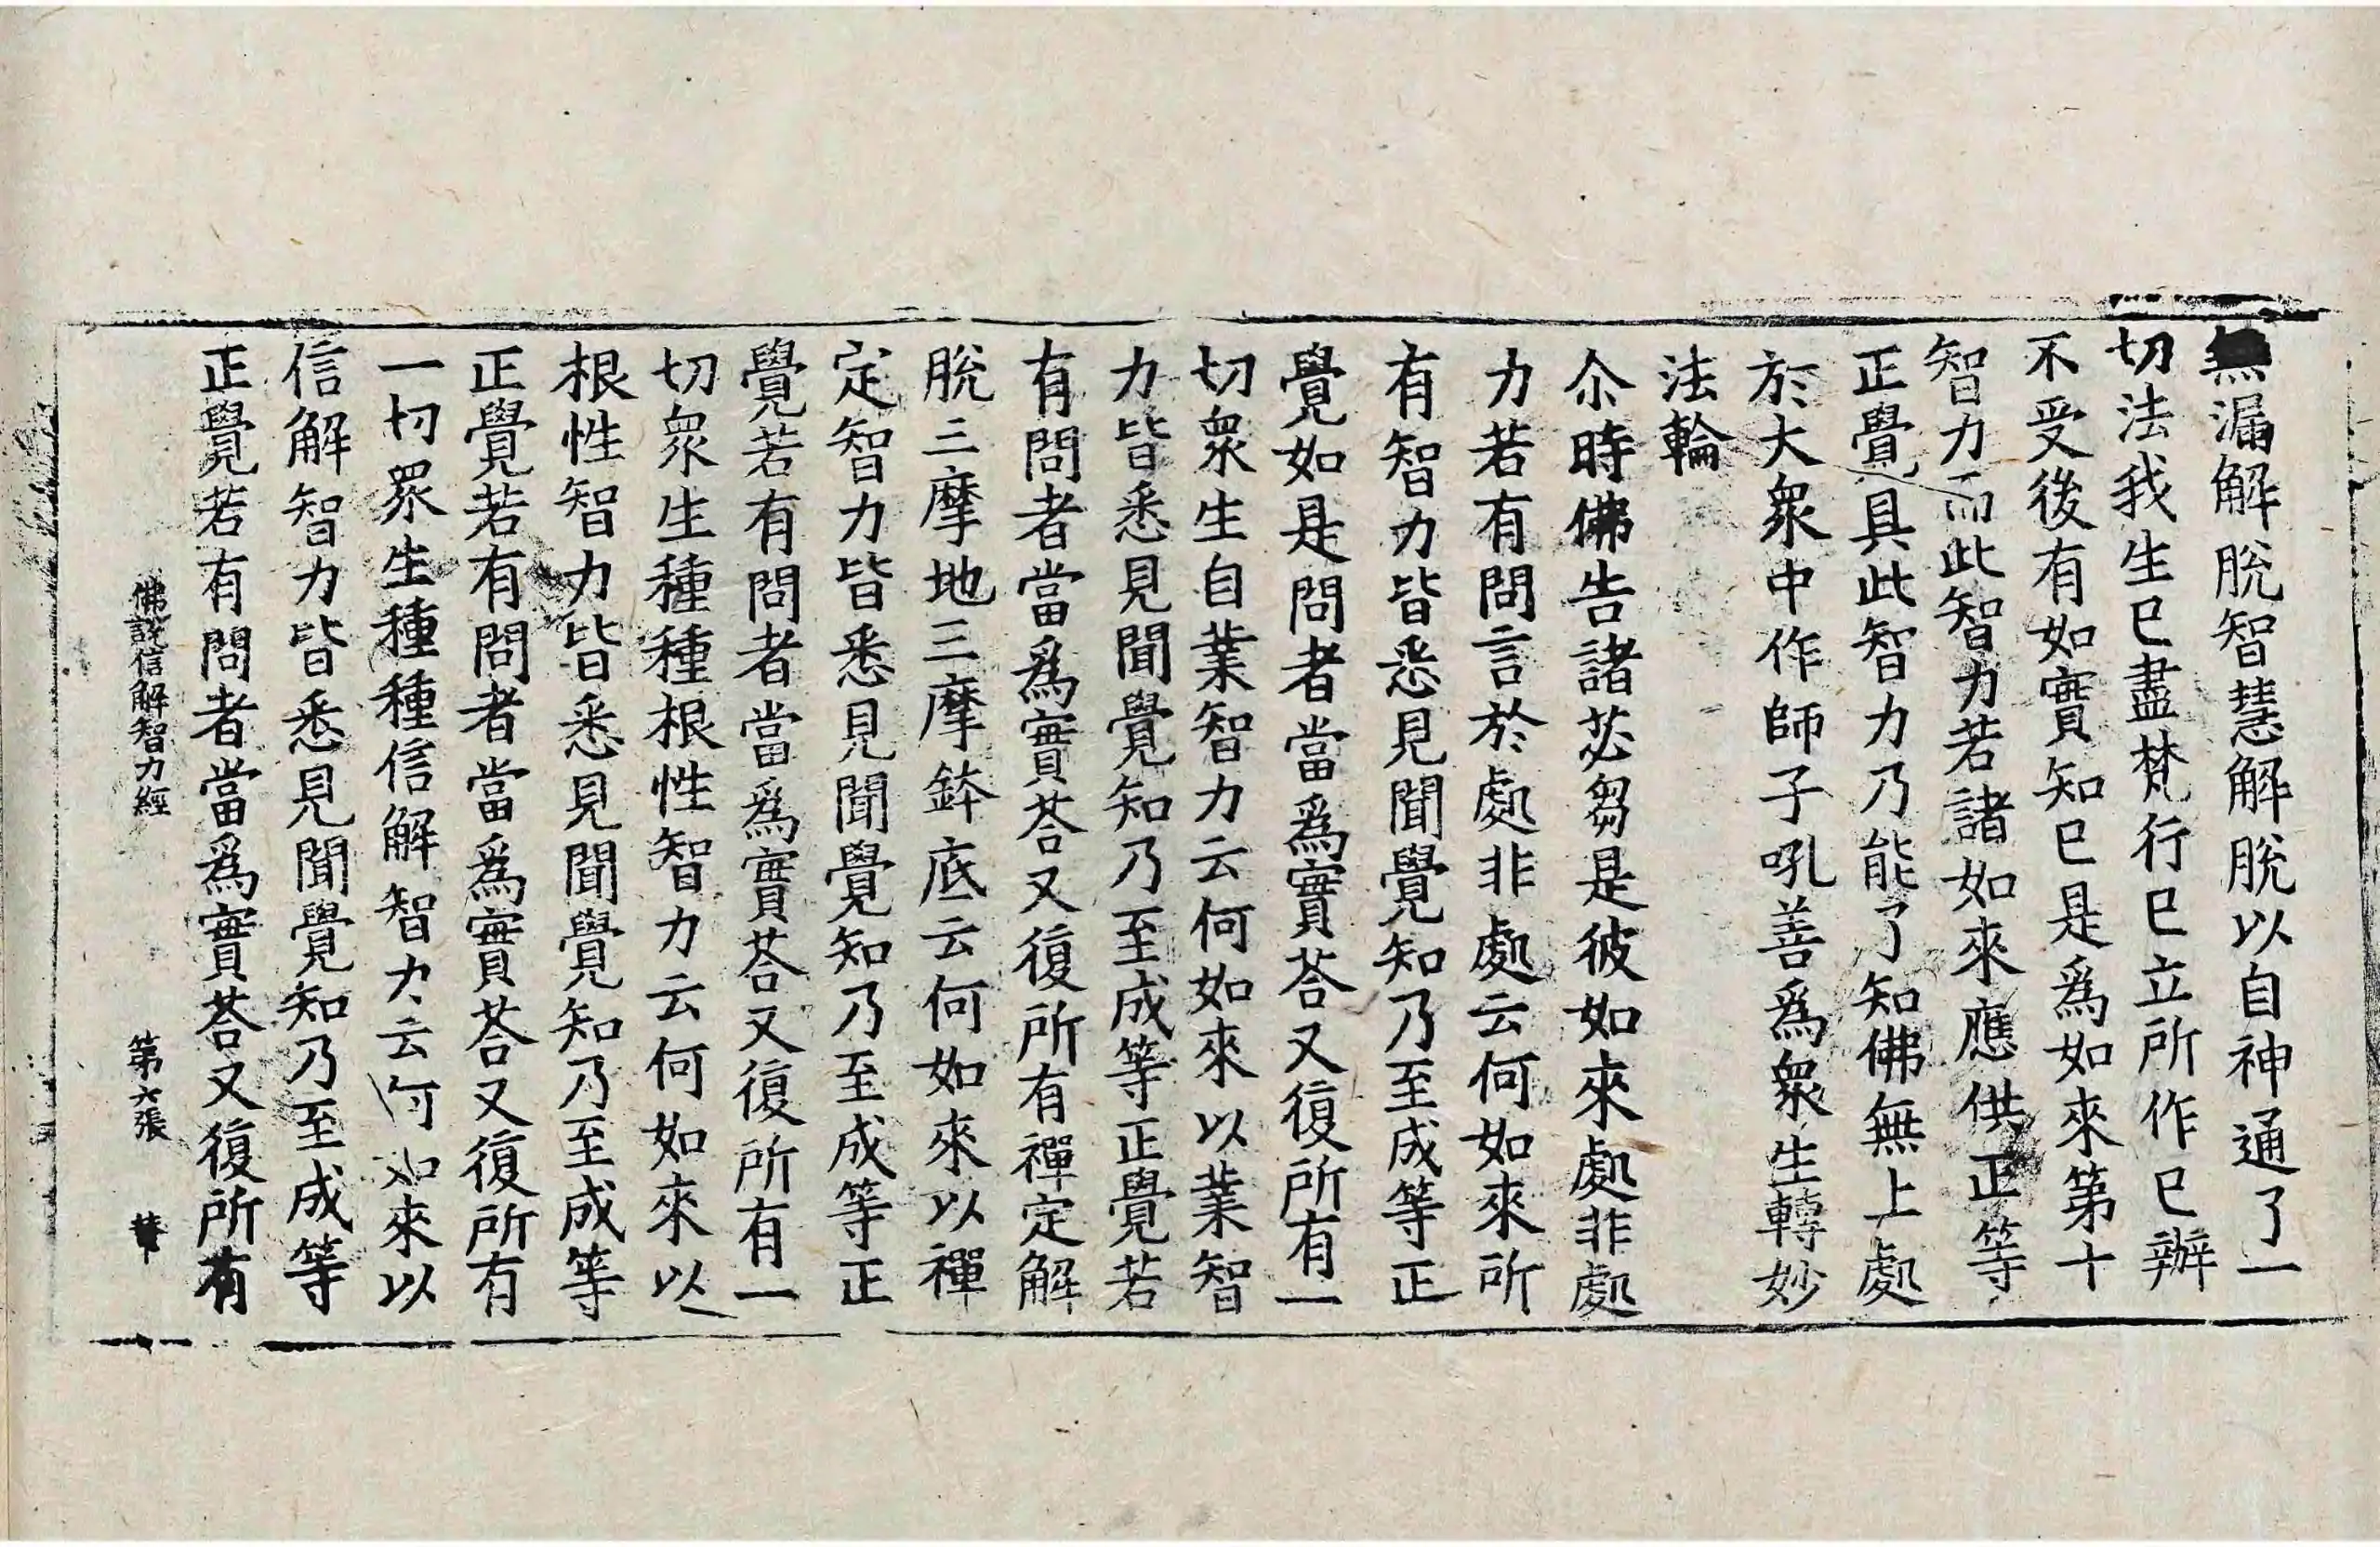 無漏解脫智慧解脫以自神通了一
切法我生已盡梵行已立所作已辦
不受後有如實知已是爲如來第十
智力而此智力若諸如來應供正等
正覺具此智力乃能了知佛無上處
於大衆中作師子吼善爲衆生轉妙
法輪
尒時佛告諸苾芻是彼如來處非處
力若有問言於處非處云何如來所
有智力皆悉見聞覺知乃至成等正
覺如是問者當爲實荅又復所有一
切衆生自業智力云何如來以業智
力皆悉見聞覺知乃至成等正覺若
有問者當爲實荅又復所有禪定解
脫三摩地三摩鉢底云何如來以禪
定智力皆悉見聞覺知乃至成等正
覺若有問者當爲實荅又復所有一
切衆生種種根性智力云何如來以
根性智力皆悉見聞覺知乃至成等
正覺若有問者當爲實荅又復所有
一切衆生種種信解智力云何如來以
信解智力皆悉見聞覺知乃至成等
正覺若有問者當爲實荅又復所有
佛說信解智力經 第六張